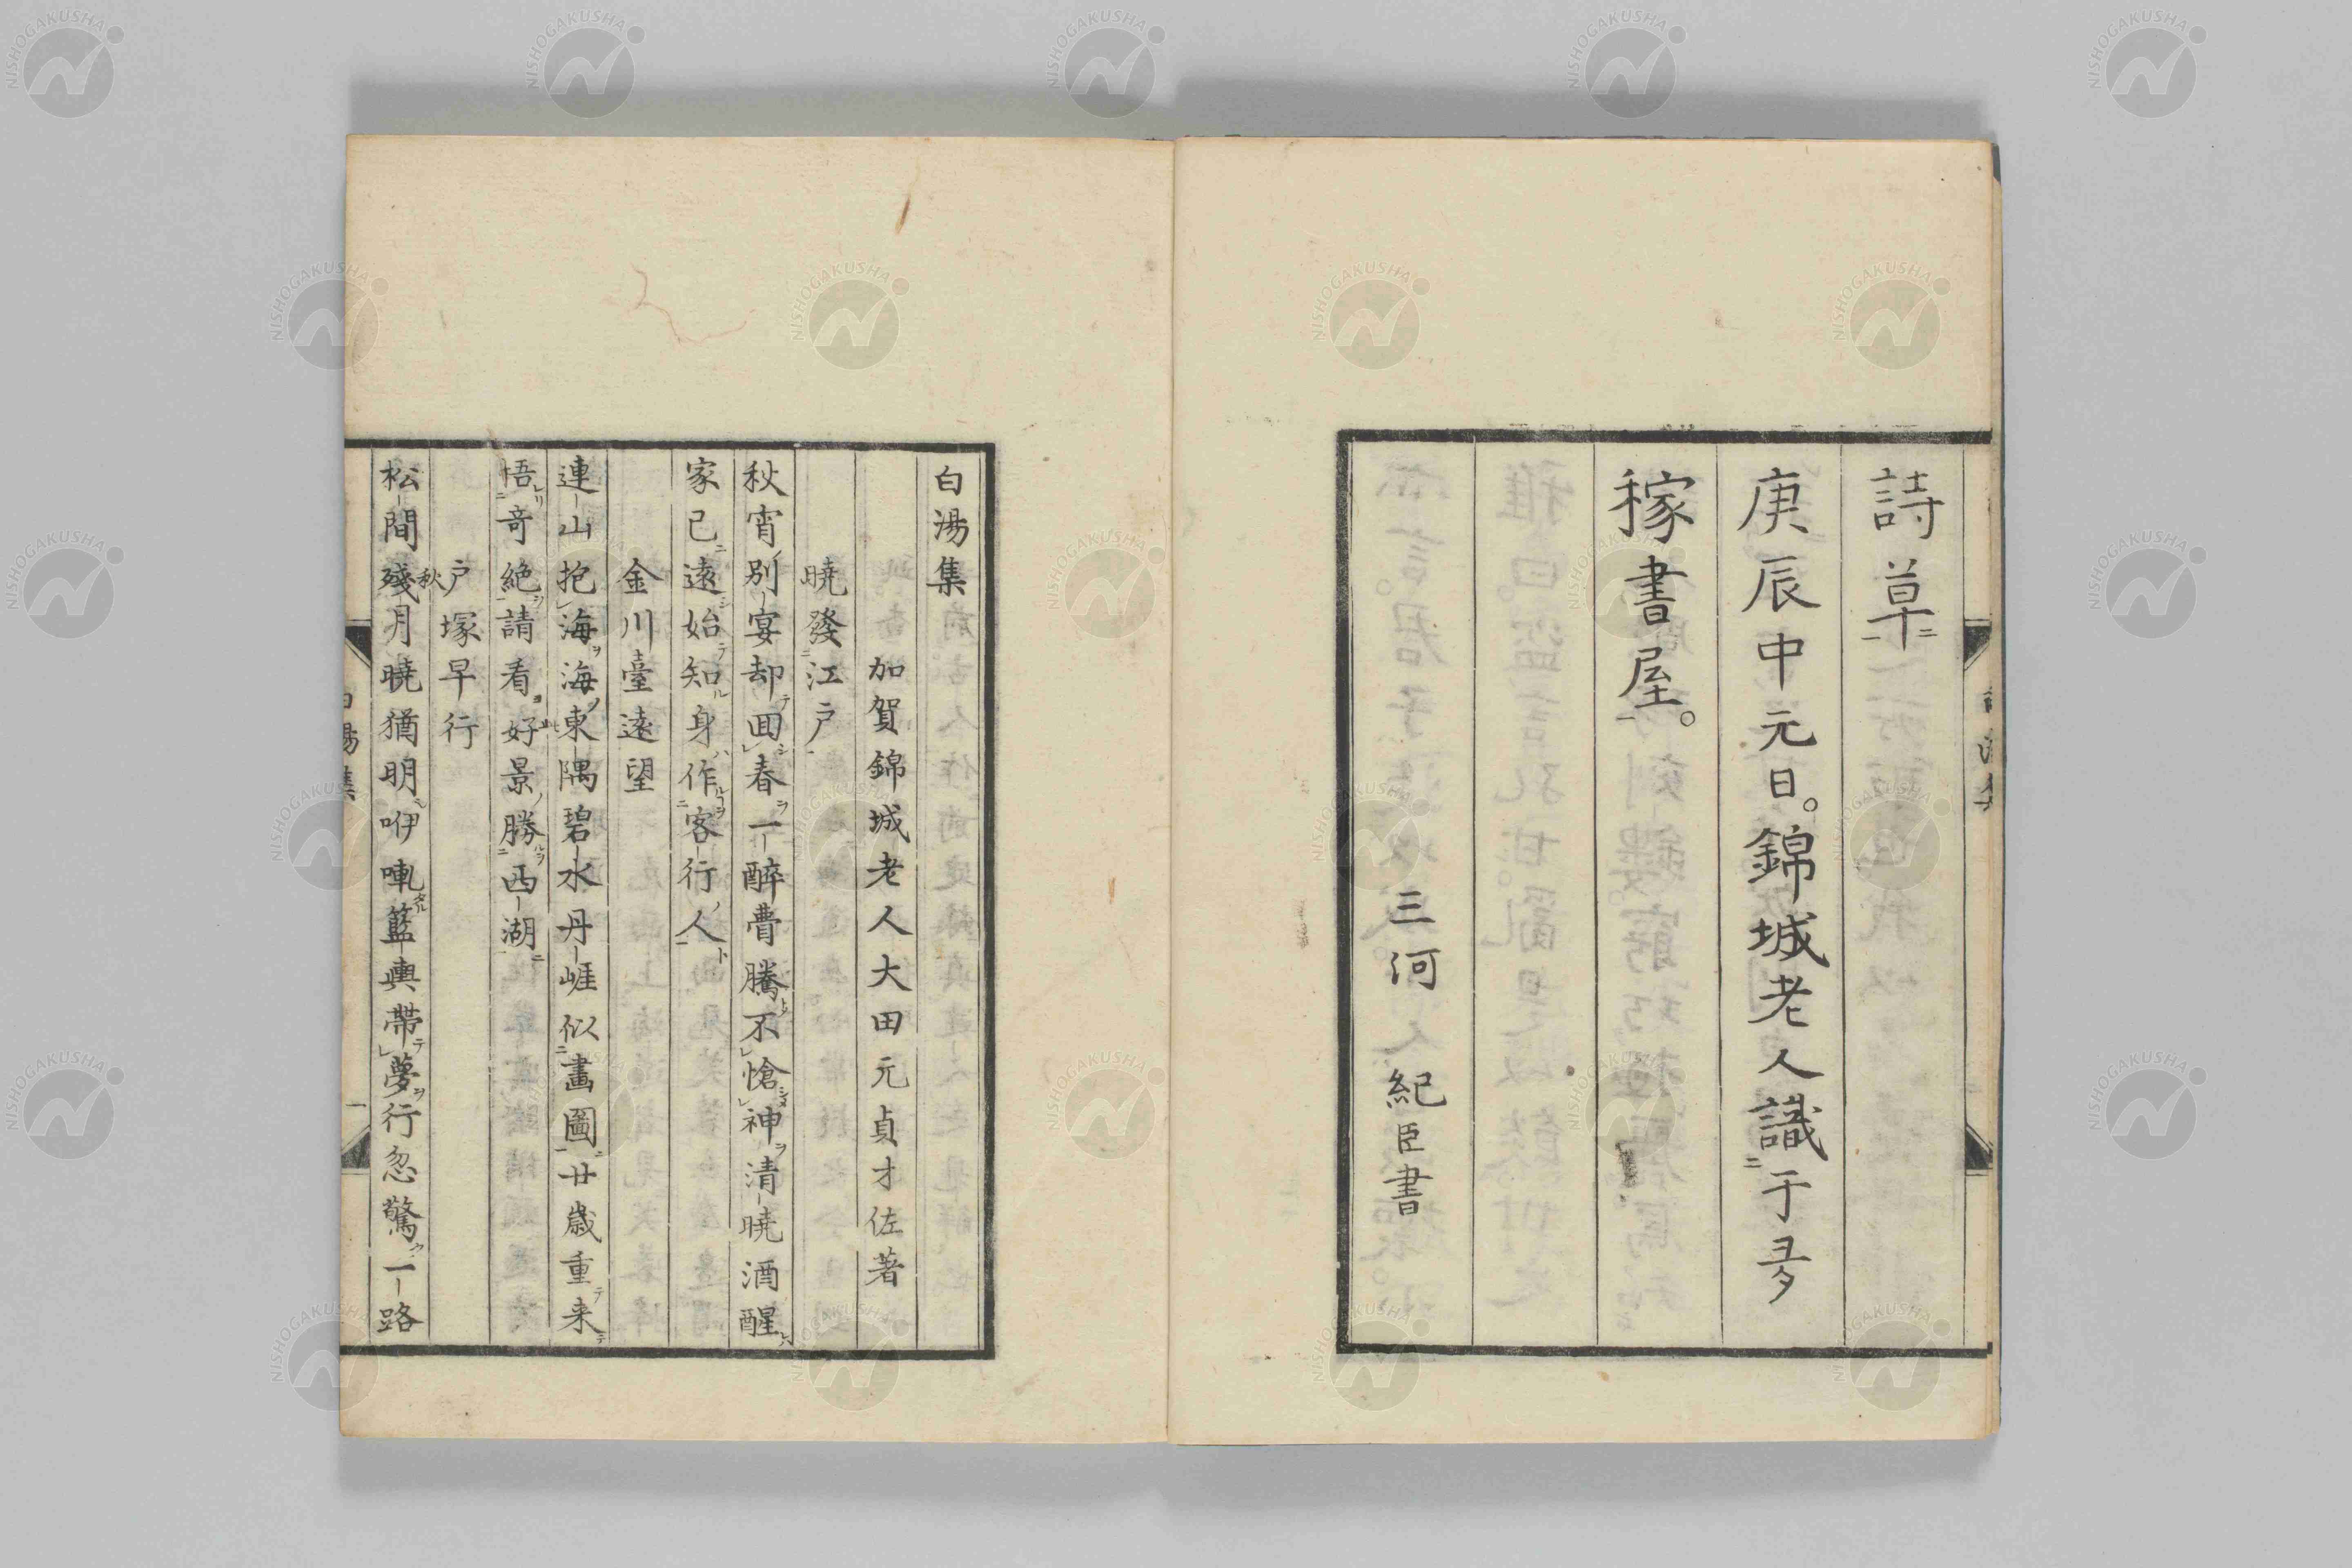 詩草
庚辰中元日。錦城老人識于多
稼書屋。
三河 紀臣書
白湯集
加賀錦城老人大田元貞才佐著
曉發江戶
秋宵別宴却回春一醉瞢騰不愴神清曉酒醒
家已遠始知身作客行人
金川臺遠望
連山抱海海東隅碧水丹崕似畫圖廿歲重来
悟竒絶請看好景勝西湖
戶塚早行
松間殘月曉猶明咿喇籃輿帶夢行忽驚一路
秋
白湯集
一
NISHOGAKUSHA